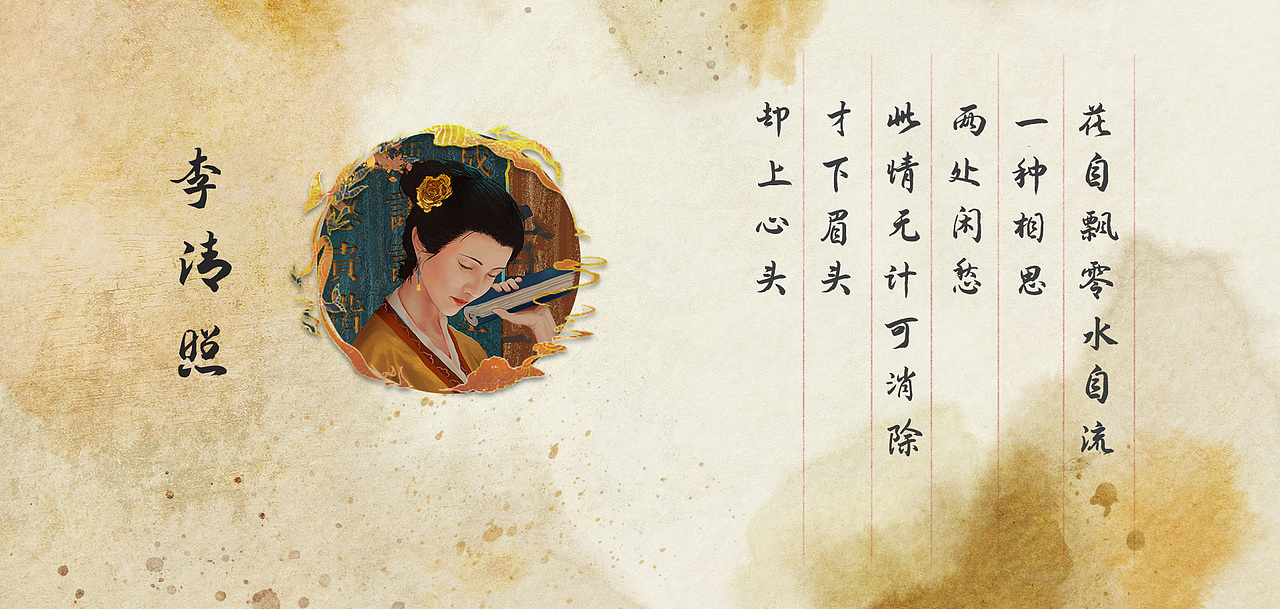 花自飘零水自流
一种相思
两处闲愁
此情无计可消除
才下眉头
却上心头
李清照